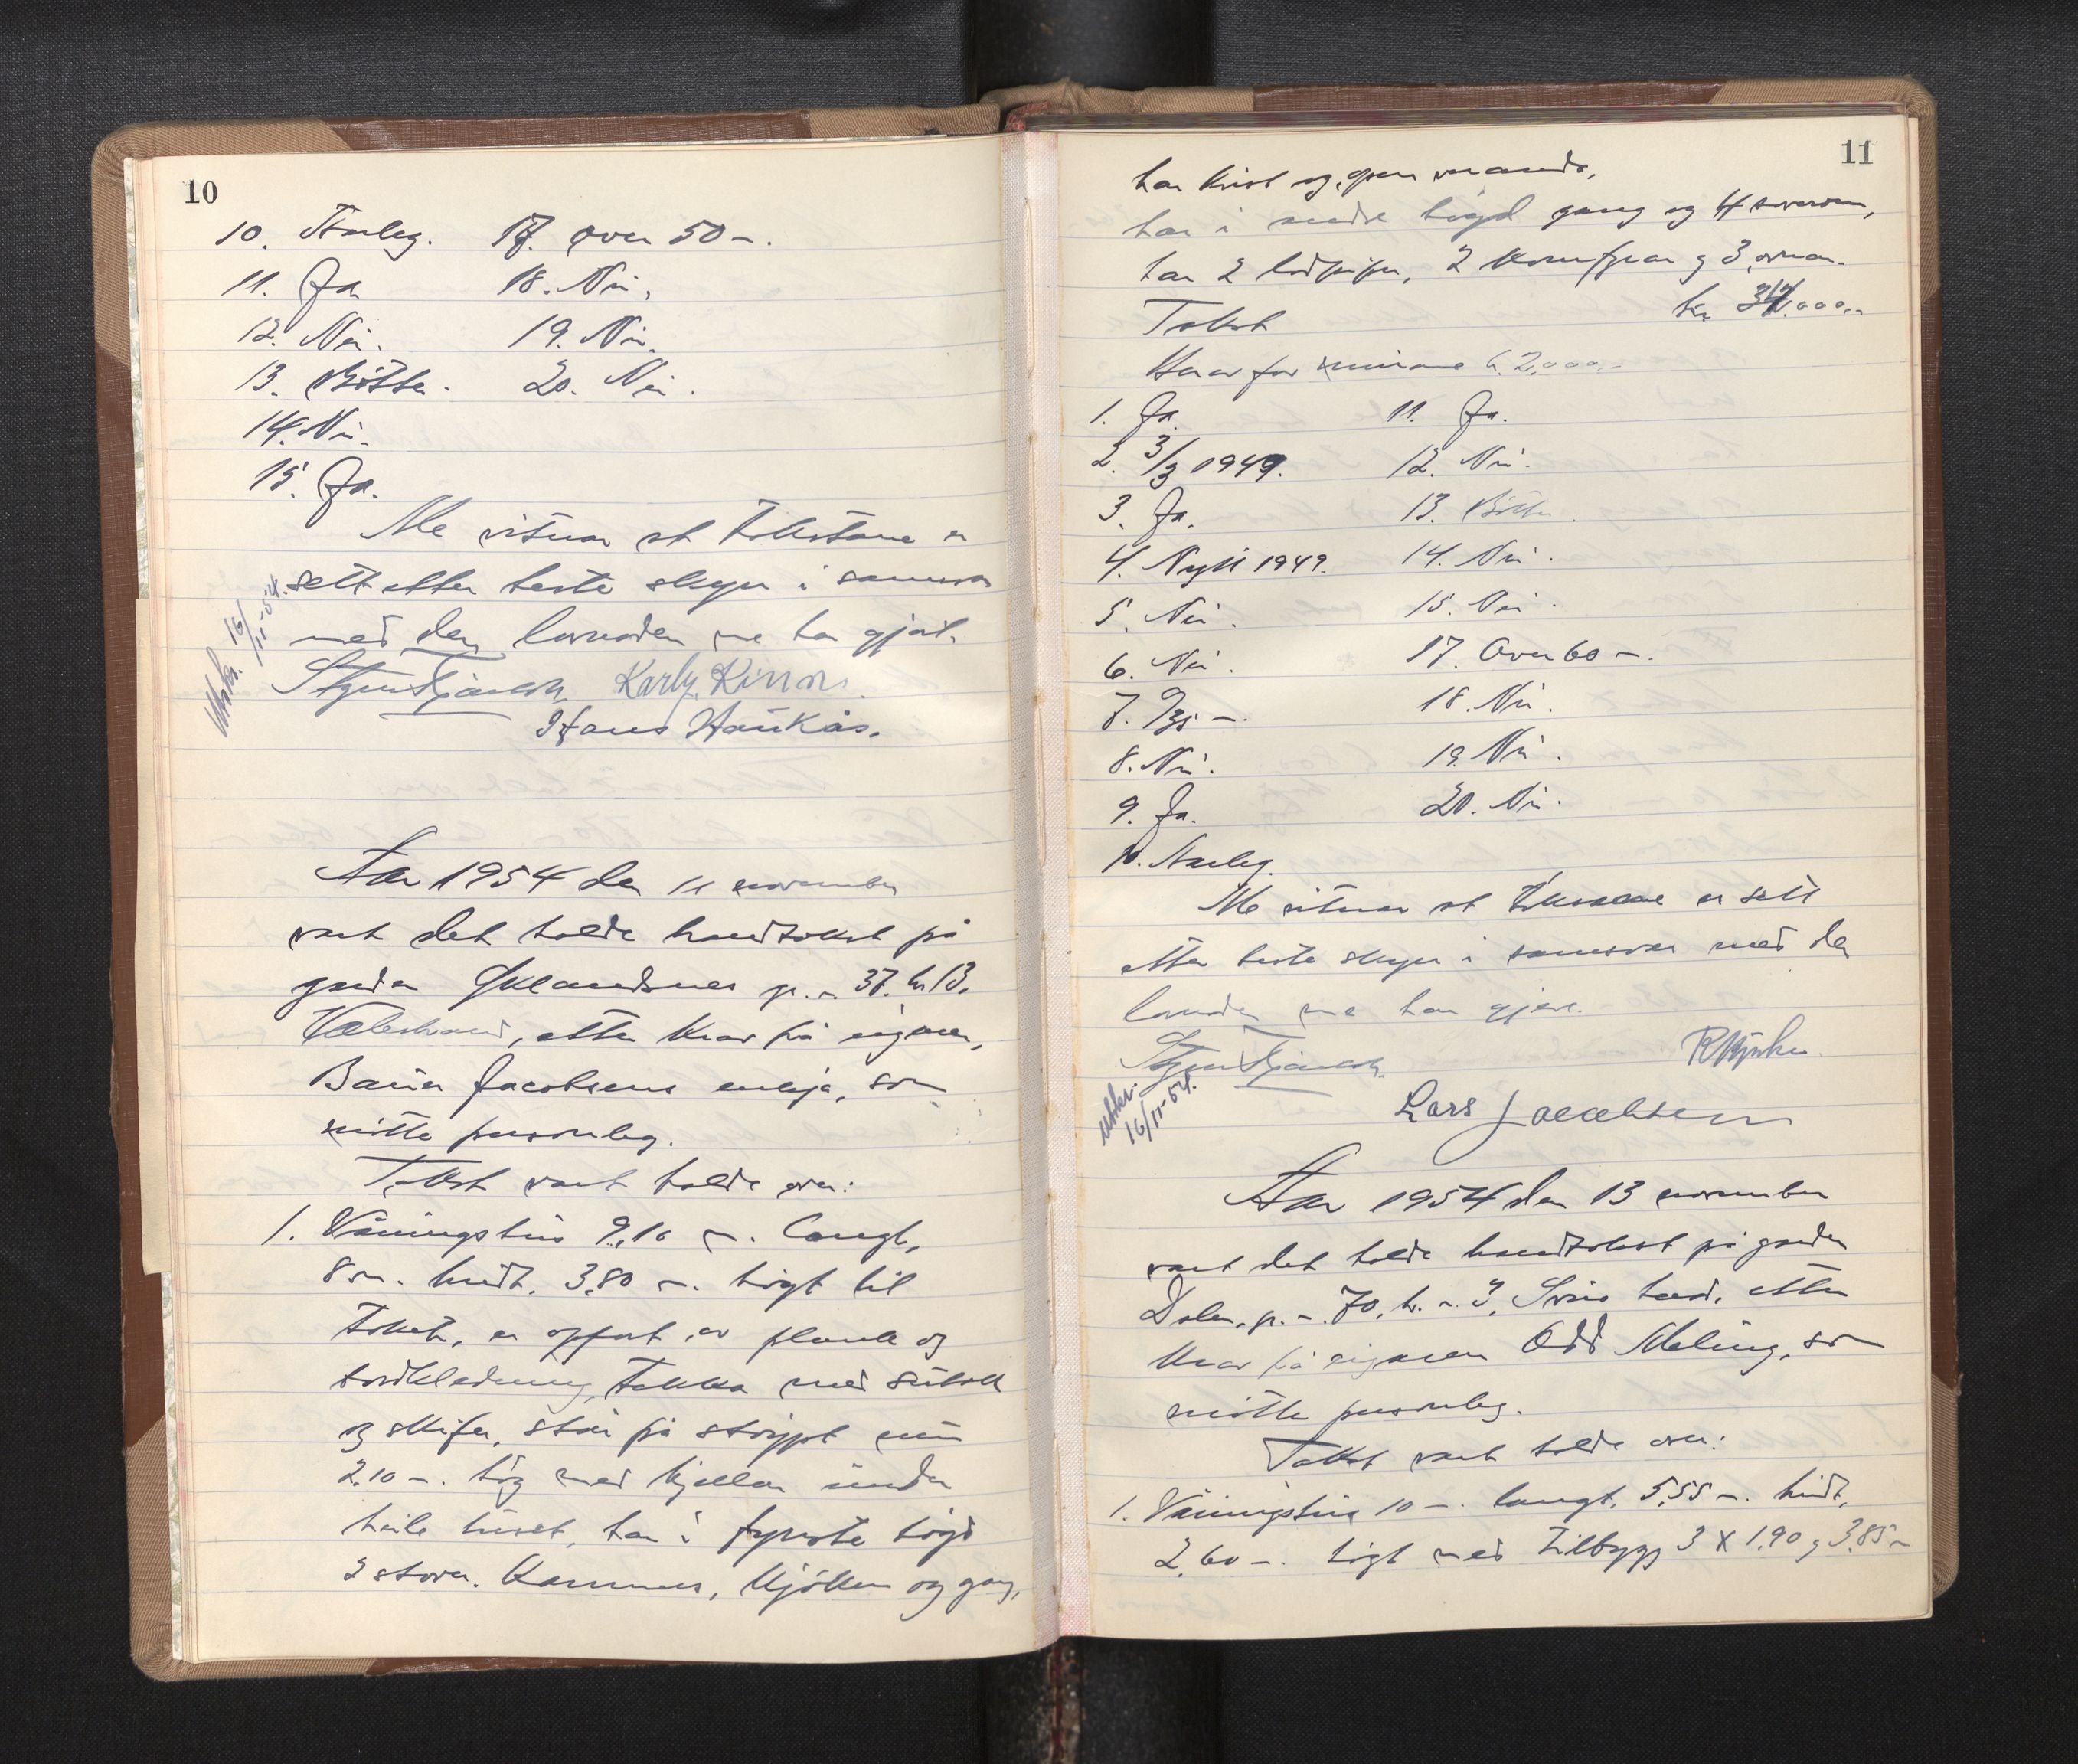 10
10. Farleg. 17. Over 50 m.
11. Ja 18. Nei.
12. Nei. 19. Nei.
13. Bøtte. 20. Nei.
14. Nei.
15. Ja.
Me vitnar at takstane er
sett etter beste skyn i samsvar
med den lovnaden me har gjort.
Karl J.
Hans Haukås.
Utskr. 16/11-54.
Aar 1954 den 11 november
vart det halde brandtakst på
garden Øklandsnes gr. n. 37. br 13.
Valestrand, etter krav frå eigaren,
Baar Jacobsens enkja, som
møtte personleg.
Takst vart halde over:
1. Våningshus 9,10 m. langt,
8 m. breidt, 3,80 m. høgt til
taket, er oppført av plank og
bordkledning, takka med sutak
og skifer, står på støypt mur
2,10 m. høg med kjellar under
heile huset, har i fyrste høgd
2 stover. Kammers, kjøken og gang,
11
har kvist og open veranda,
har i andre høgd gang og 4 soverom,
har 2 lodpiper, 2 komfyrar og 3 omnar.
Takst kr. 34.000,-
Herav for murane kr. 2.000,-
1. Ja. 11. Ja.
2. 3/3 1949. 12. Nei.
3. Ja. 13. Bøtte.
4. Nytt 1949. 14. Nei.
5. Nei. 15. Nei.
6. Nei. 17. Over 60 m.
7. 0/35 m. 18. Nei.
8. Nei. 19. Nei.
9. Ja. 20. Nei.
10. Farleg.
Me vitnar at takstane er sett
etter beste skyn i samsvar med den
lovnaden me har gjeve.
Lars Jacobsen
Utskr. 16/11-54.
Aar 1954 den 13 november
vart det halde brandtakst på garden
Dalen, gr. n. 70, br. n. 3, Sveio herad, etter
krav frå eigaren Odd Meling, som
møtte personleg.
Takst vart halde over:
1. Våningshus 10 m. langt, 5,55 m. breidt,
2,60 m. høgt med tilbygg 3 x 1,90 og 3,85 m